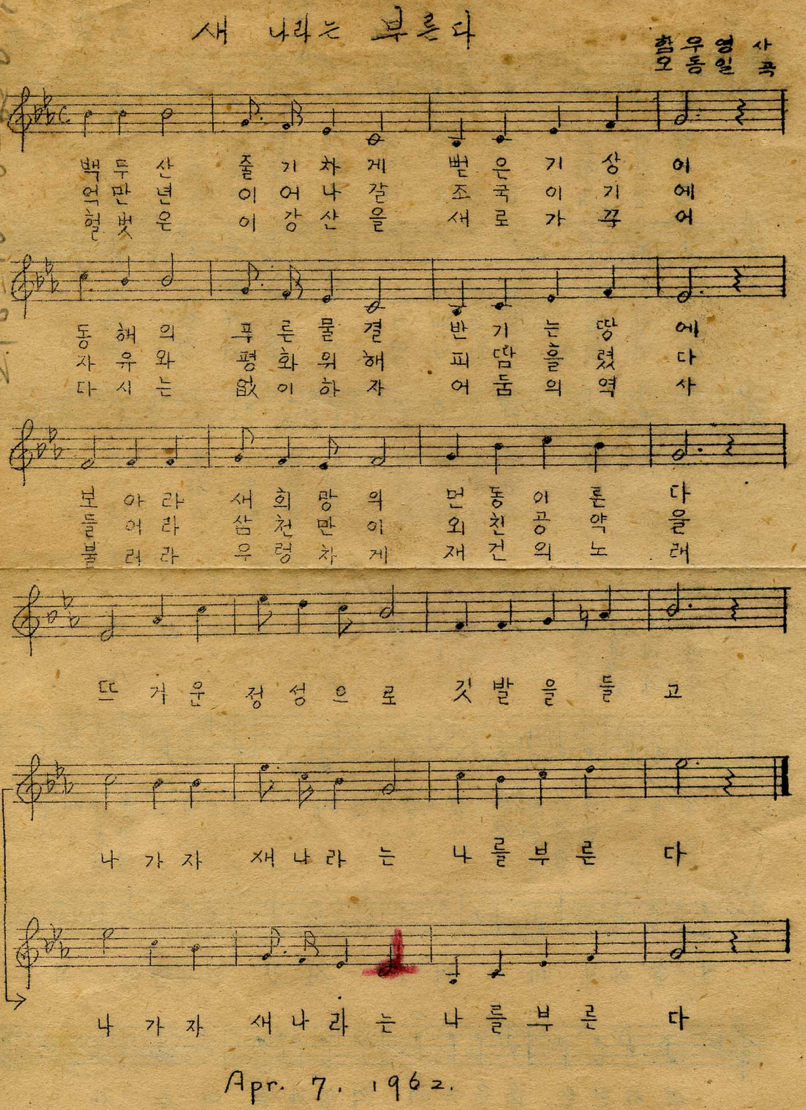 새 나라는 부른다
함우영 사
오동일 곡
백두산 줄기차게 뻗은 기상이
억만년 이어나갈 조국이기에
헐벗은 이 강산을 새로 가꾸어
동해의 푸른물결 반기는 땅에
자유와 평화위해 피땀흘렸다
다시는 없이하자 어둠의 역사
보아라 새희망의 먼동이 튼다
들어라 삼천만이 외친 공약을
불러라 우렁차게 재건의 노래
뜨거운 정성으로 깃발을 들고
나가자 새나라는 나를 부른다
나가자 새나라는 나를 부른다
Apr. 7. 1962.